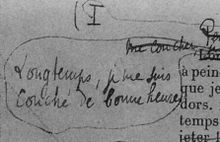 (I
me coucher,
Longtemps, je me suis
couché de bonne heure
à pein
que je
dors.
temps
jeter l